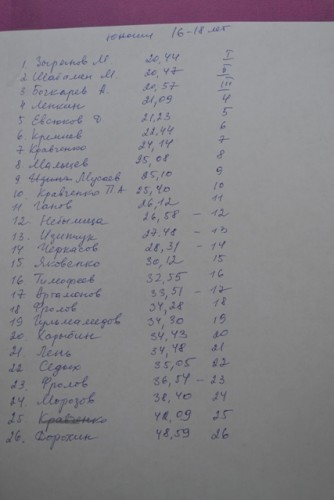 юноши 16-18 лет
1. М 20,44 I
2. Шабалин М. 20,47 II
3. Бочкарев А. 20,57 III
4 Лепкин 21,09 4
5 Евсюков 21,23 5
6 Кремнев 22,44 6
7 Кравченко 24,14 7
8 Мальцев 25,08 8
9 25,10 9
10 Кравченко П.А 25,40 10
11 Гапов 26,12 11
12. Непомнища 26,58 - 12
13. 27,48 - 13
14 Черкасов 28,31 - 14
15. Яковенко 30,12 15
16 Тимофеев 32,55 16
17 Артамонов 33,51 - 17
18 Фролов 34,28 18
19 34,30 19
20 34,43 20
21. Лень 34,48 21
22 Седых 35,05 22
23 Фролов 36,54 - 23
24 Морозов 38,40 24
25 48,09 25
26. Дорохин 48,59 26